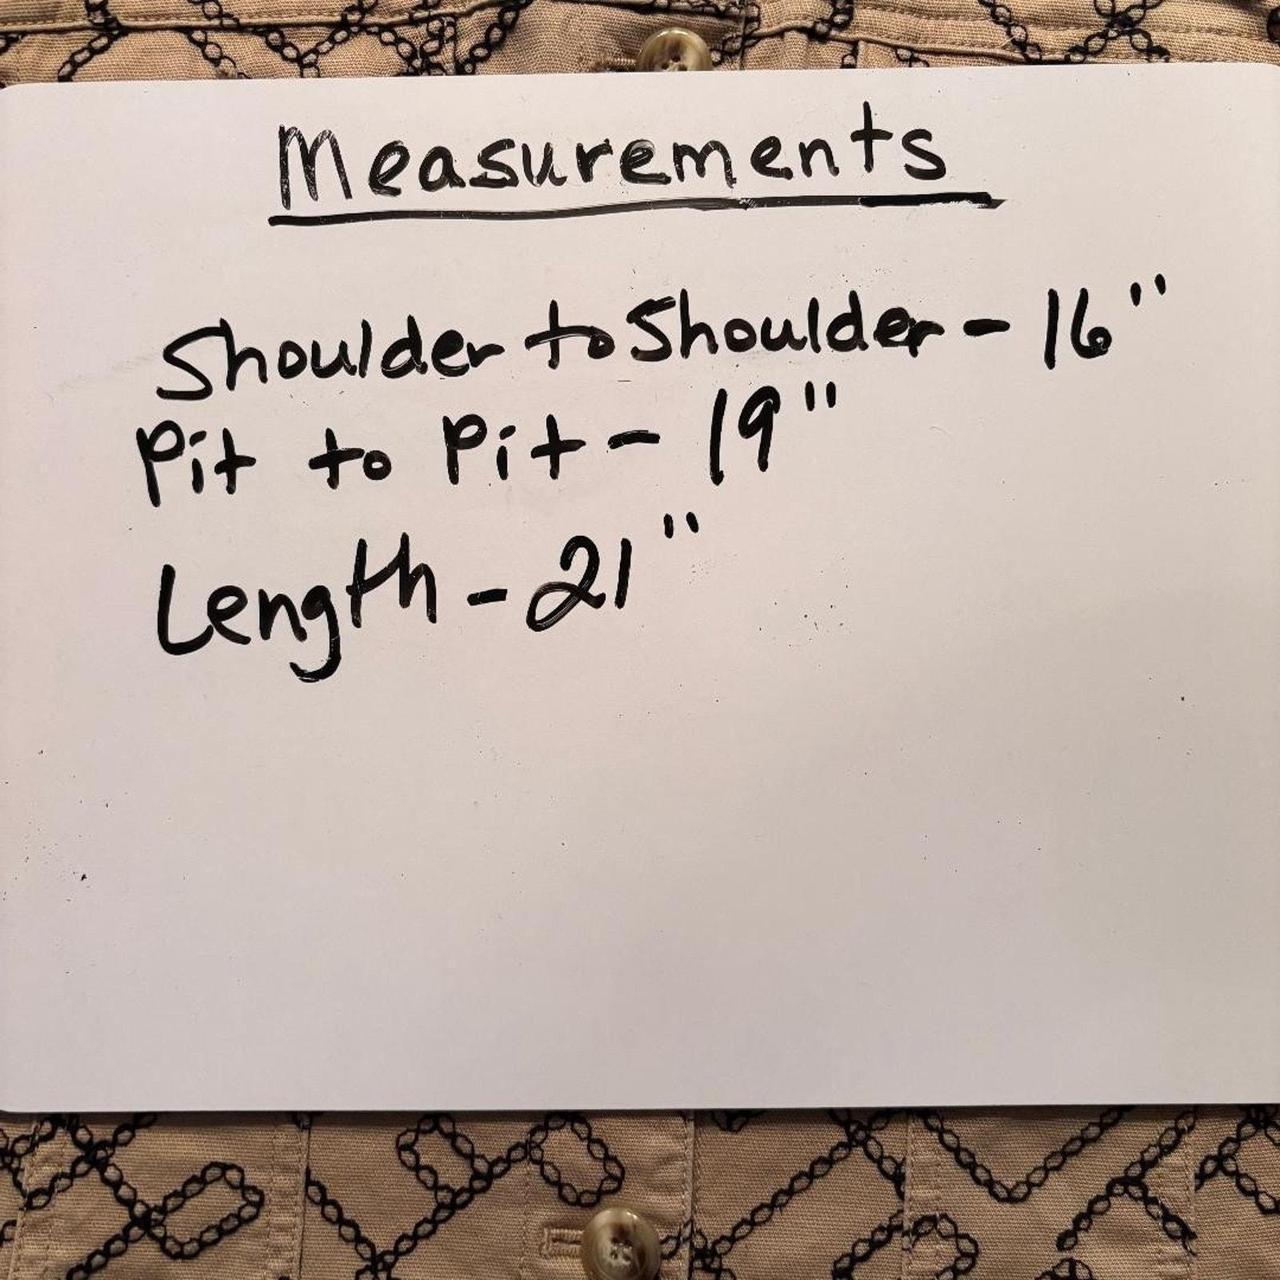 Measurements
Shoulder to Shoulder - 16"
Pit to Pit - 19"
Length - 21"